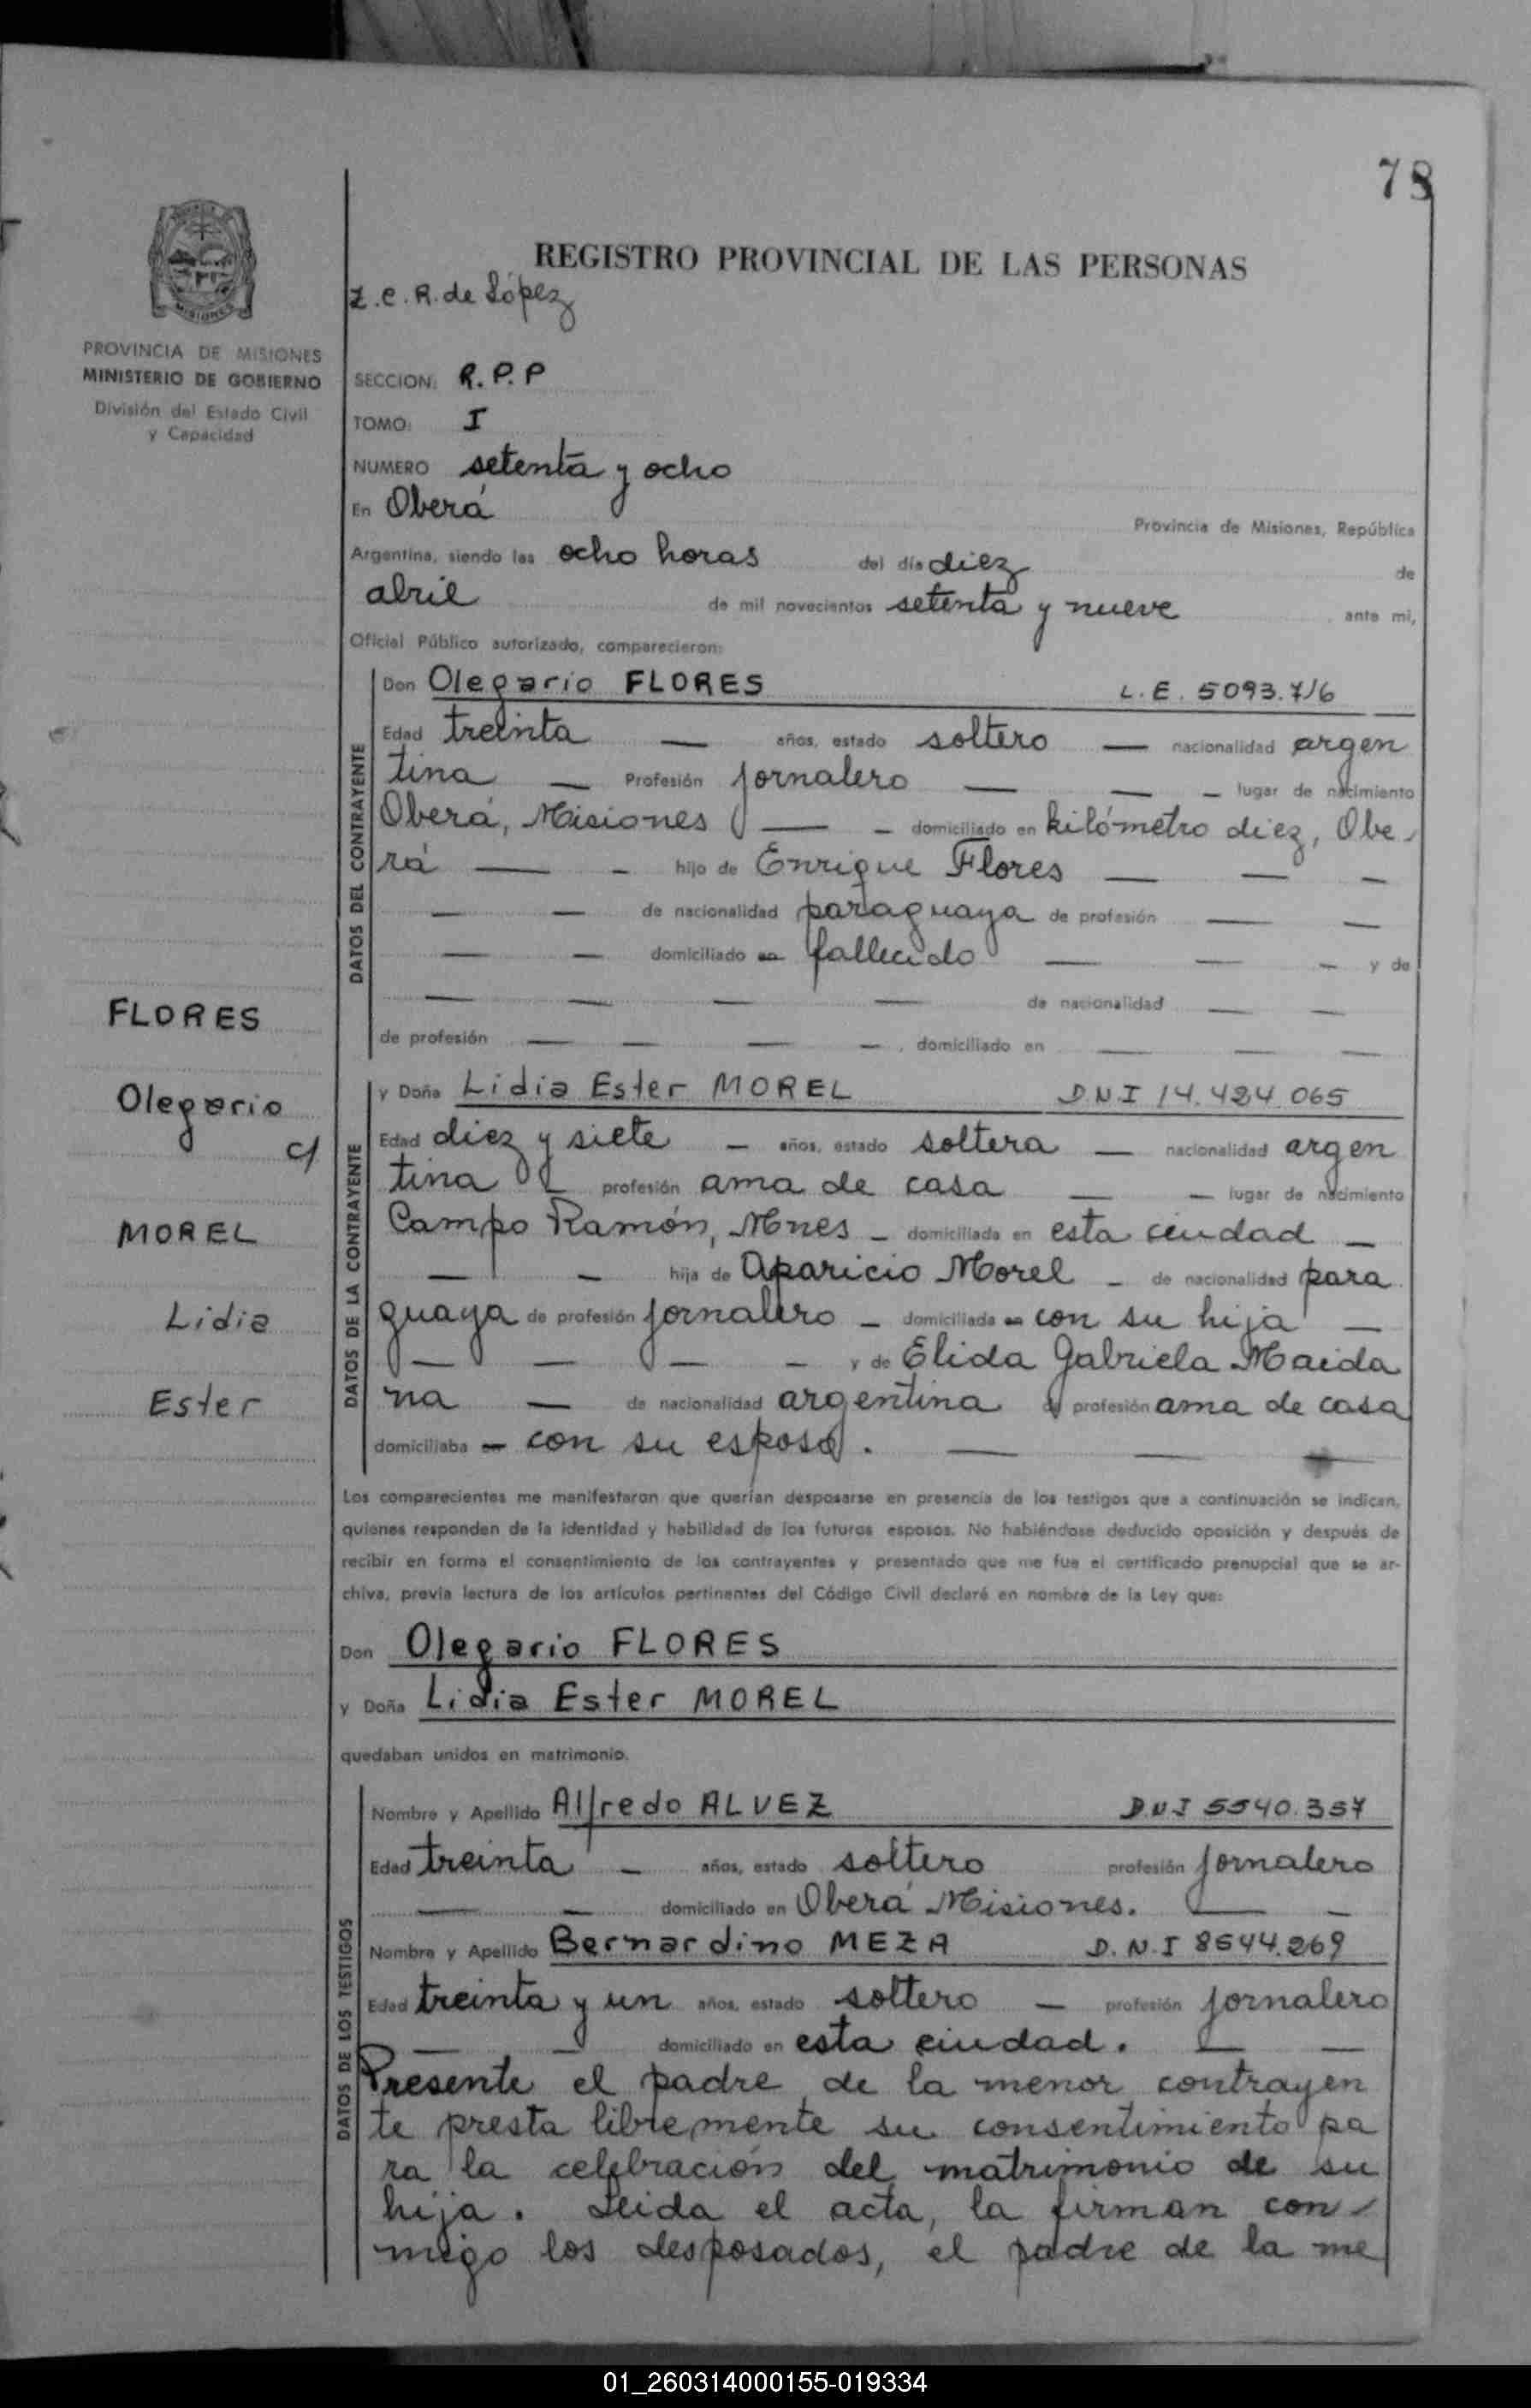 78
REGISTRO PROVINCIAL DE LAS PERSONAS
Z.C.R. de López
MISIONES
PROVINCIA DE MISIONES
MINISTERIO DE GOBIERNO
División del Estado Civil
y Capacidad
SECCION: R.P.P
TOMO: I
NUMERO setenta y ocho
En Oberá Provincia de Misiones, República
Argentina, siendo las ocho horas del día diez de
abril de mil novecientos setenta y nueve ante mi,
Oficial Público autorizado, comparecieron:
DATOS DEL CONTRAYENTE
Don Olegario FLORES L.E. 5093.716
Edad treinta — años, estado soltero — nacionalidad argen
tina — Profesión jornalero — — — lugar de nacimiento
Oberá, Misiones — — domiciliado en kilómetro diez, Obe-
rá — — hijo de Enrique Flores — — —
— — de nacionalidad paraguaya de profesión — —
— — domiciliado en fallecido — — — y de
— — — — de nacionalidad — —
de profesión — — — — , domiciliado en — — —
FLORES
Olegario
c/
MOREL
Lidia
Ester
DATOS DE LA CONTRAYENTE
y Doña Lidia Ester MOREL D.N.I 14.424.065
Edad diez y siete — años, estado soltera — nacionalidad argen
tina — profesión ama de casa — — lugar de nacimiento
Campo Ramón, Mnes — domiciliada en esta ciudad —
— — hija de Aparicio Morel — de nacionalidad para
guaya de profesión jornalero — domiciliado en con su hija —
— — — — y de Elida Gabriela Maida
na — de nacionalidad argentina de profesión ama de casa
domiciliaba en con su esposo. — — —
Los comparecientes me manifestaron que querían desposarse en presencia de los testigos que a continuación se indican,
quienes responden de la identidad y habilidad de los futuros esposos. No habiéndose deducido oposición y después de
recibir en forma el consentimiento de los contrayentes y presentado que me fue el certificado prenupcial que se ar-
chiva, previa lectura de los artículos pertinentes del Código Civil declaré en nombre de la Ley que:
Don Olegario FLORES
y Doña Lidia Ester MOREL
quedaban unidos en matrimonio.
DATOS DE LOS TESTIGOS
Nombre y Apellido Alfredo ALVEZ D.N.I 5540.357
Edad treinta — años, estado soltero profesión jornalero
— — domiciliado en Oberá Misiones. — —
Nombre y Apellido Bernardino MEZA D.N.I 8544.269
Edad treinta y un años, estado soltero — profesión jornalero
— — domiciliado en esta ciudad. — —
Presente el padre de la menor contrayen
te presta libremente su consentimiento pa
ra la celebración del matrimonio de su
hija. Leida el acta, la firman con-
migo los desposados, el padre de la me
01_260314000155-019334